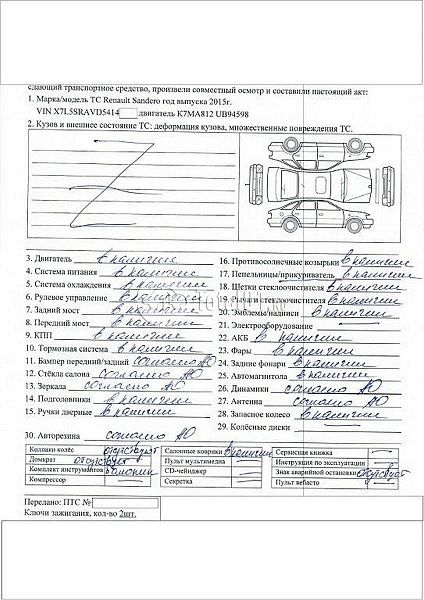 слающий транспортное средство, произвели совместный осмотр и составили настоящий акт:
1. Марка/модель ТС Renault Sandero год выпуска 2015г.
VIN X7L5SRAVD5414 двигатель K7MA812 UB94598
2. Кузов и внешнее состояние ТС: деформация кузова, множественные повреждения ТС.
Z
3. Двигатель в наличии
4. Система питания в наличии
5. Система охлаждения в наличии
6. Рулевое управление в наличии
7. Задний мост в наличии
8. Передний мост в наличии
9. КПП в наличии
10. Тормозная система в наличии
11. Бампер передний/задний согласно АО
12. Стёкла салона согласно АО
13. Зеркала согласно АО
14. Подголовники в наличии
15. Ручки дверные в наличии
16. Противосолнечные козырьки в наличии
17. Пепельницы/прикуриватель в наличии
18. Щетки стеклоочистителя в наличии
19. Рычаги стеклоочистителя в наличии
20. Эмблемы/надписи в наличии
21. Электрооборудование —
22. АКБ в наличии
23. Фары в наличии
24. Задние фонари в наличии
25. Автомагнитола в наличии
26. Динамики согласно АО
27. Антенна согласно АО
28. Запасное колесо в наличии
29. Колёсные диски —
30. Авторезина согласно АО
Колпаки колёс отсутствуют
Домкрат отсутствует
Комплект инструментов
Компрессор —
Салонные коврики в наличии
Пульт мультимедиа —
CD-чейнджер —
Секретка —
Сервисная книжка —
Инструкция по эксплуатации —
Знак аварийной остановки отсутствует
Пульт вебасто
Передано: ПТС №
Ключи зажигания, кол-во 2шт.